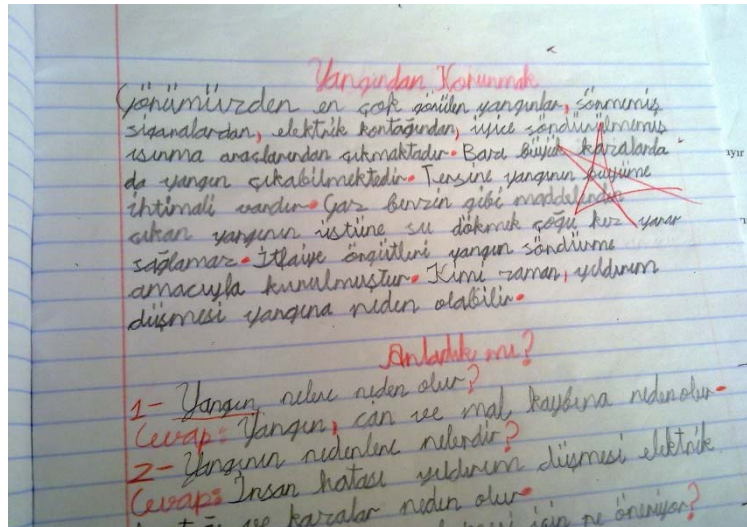 Yangından Korunmak
Günümüzden en çok görülen yangınlar, sönmemiş
sigaralardan, elektrik kontağından, iyice söndürülmemiş
ısınma araçlarından çıkmaktadır. Bazı büyük kazalarda
da yangın çıkabilmektedir. Tersine yangının büyüme
ihtimali vardır. Gaz benzin gibi maddelerden
çıkan yangının üstüne su dökmek çoğu kez yarar
sağlamaz. İtfaiye örgütleri yangın söndürme
amacıyla kurulmuştur. Kimi zaman, yıldırım
düşmesi yangına neden olabilir.
Anladık mı?
1- Yangın nelere neden olur?
Cevap: Yangın, can ve mal kaybına neden olur.
2- Yangının nedenleri nelerdir?
Cevap: İnsan hatası yıldırım düşmesi elektrik
ve kazalar neden olur.
için ne öneriyor?